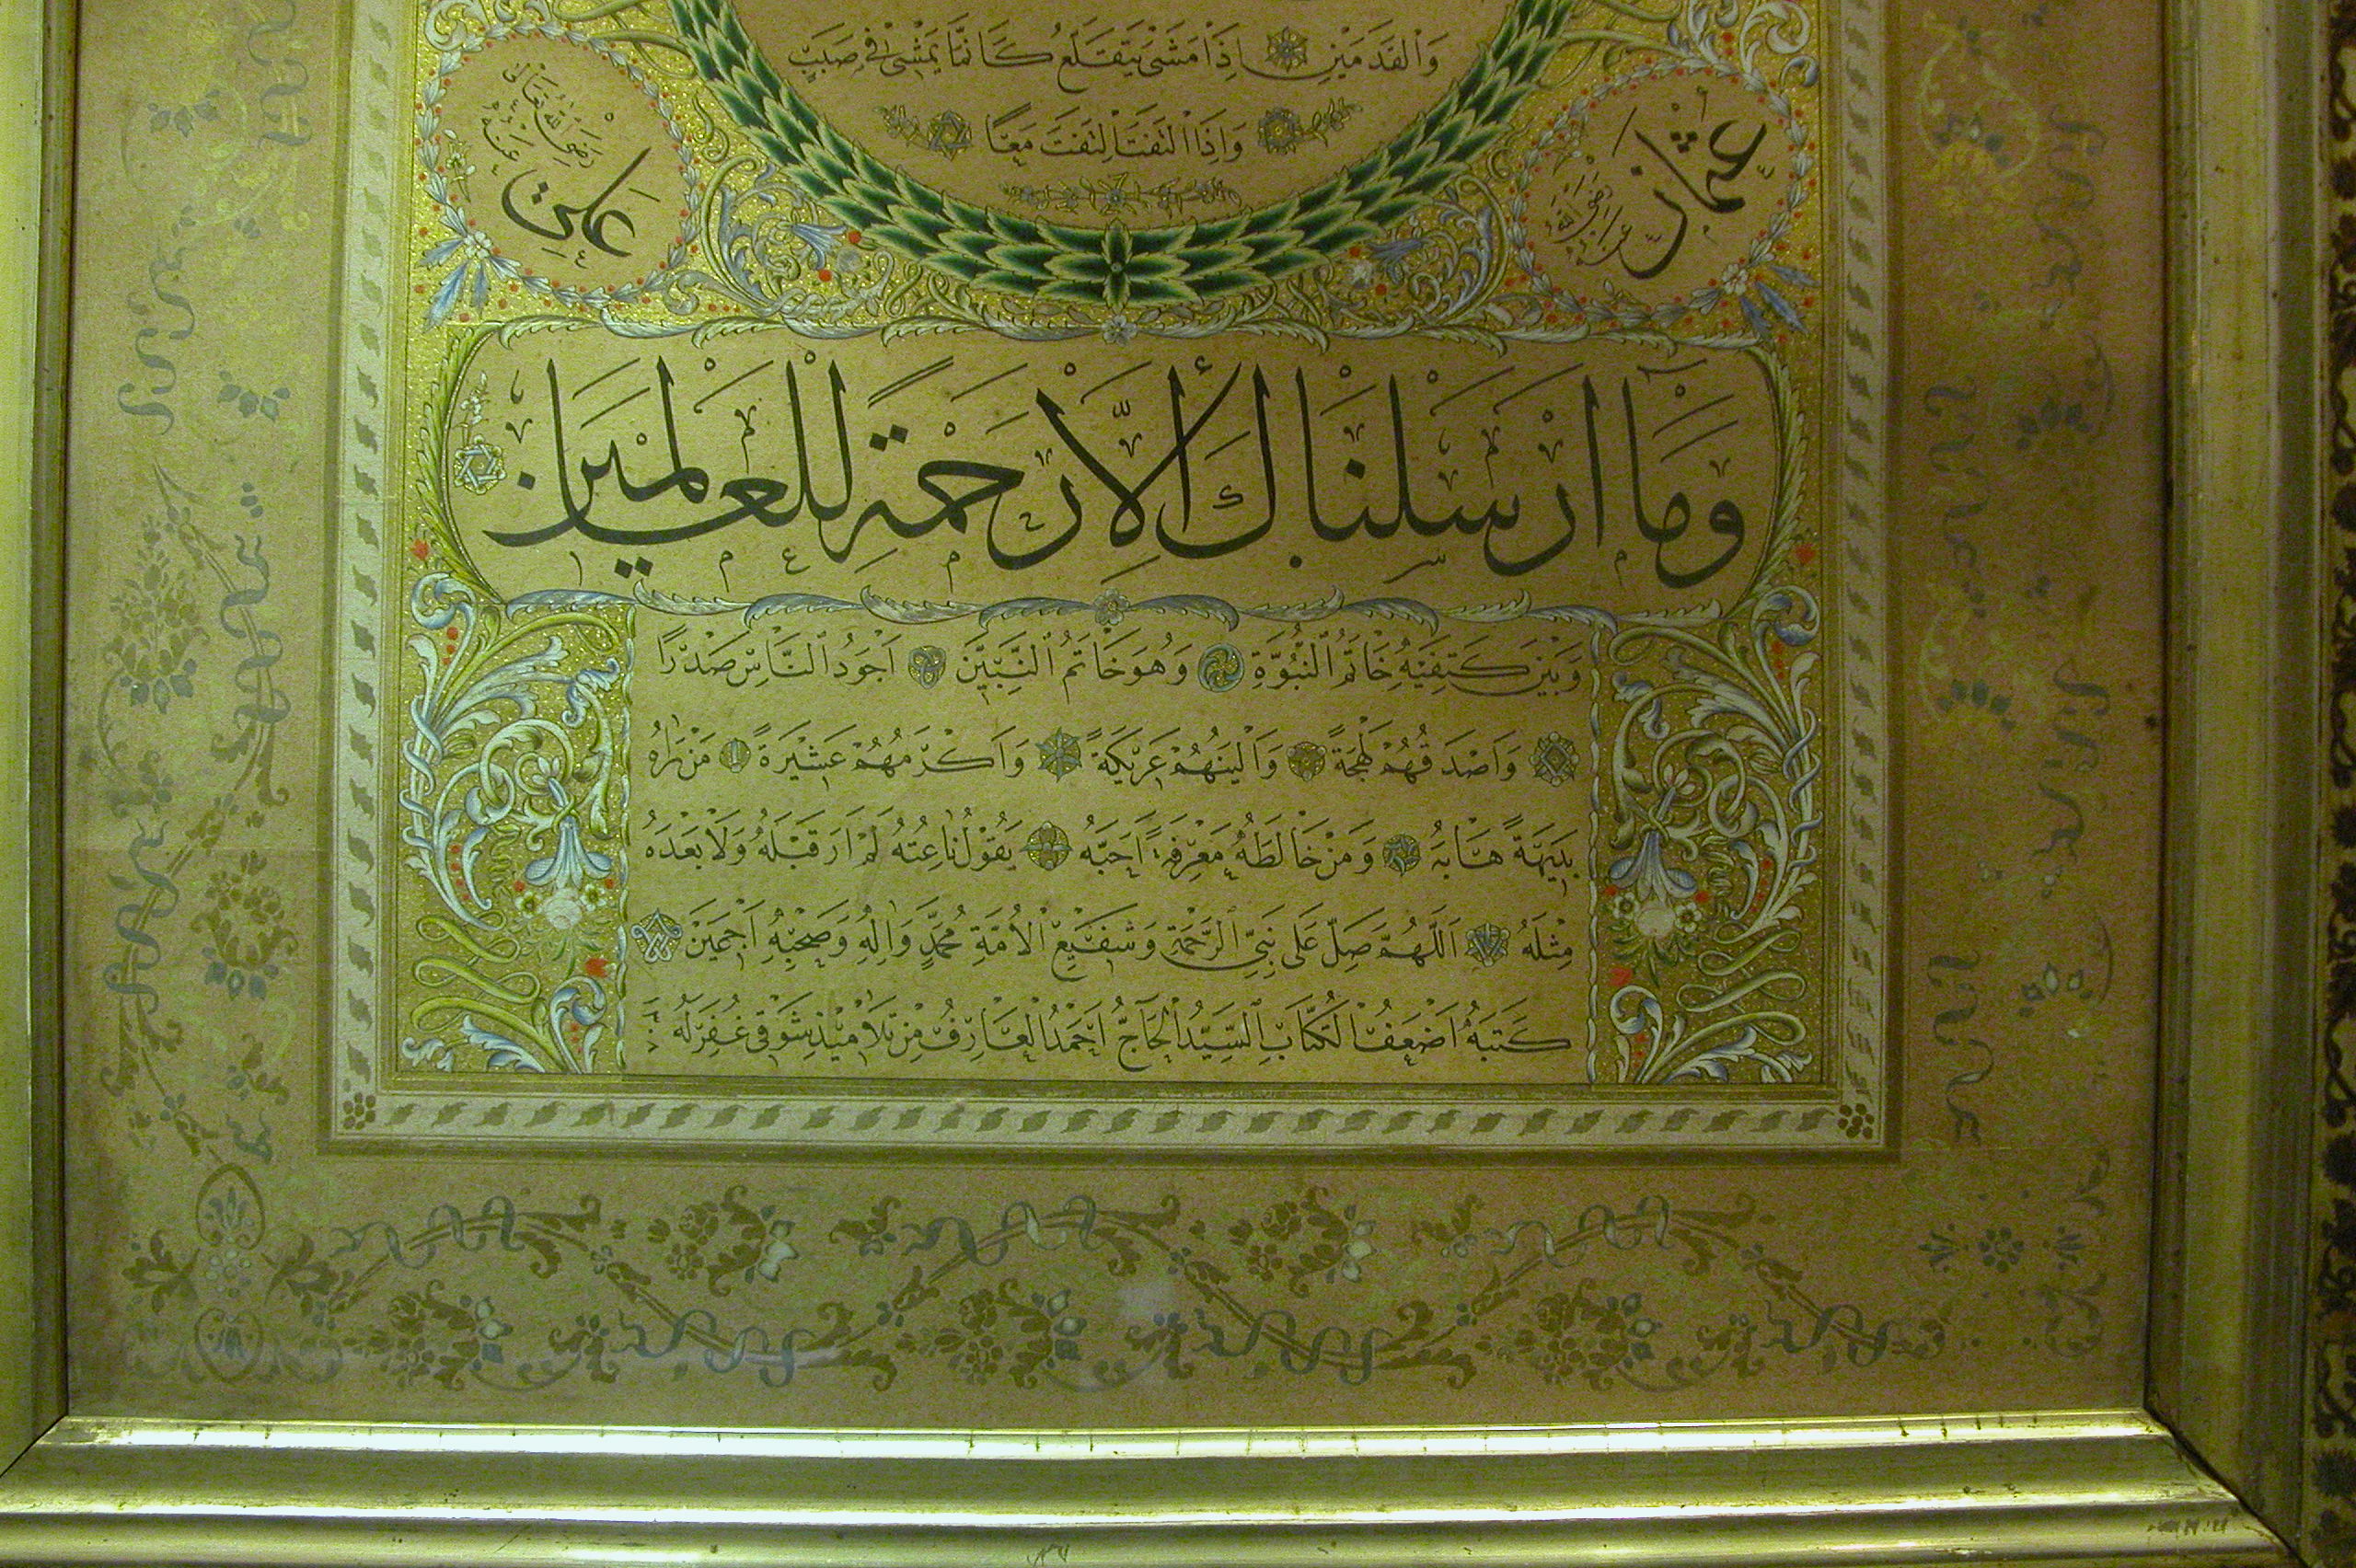 وَالْقَدَمَيْنِ اِذَا مَشَى يَتَقَلَّعُ كَاَنَّمَا يَمْشِى فِى صَبَبٍ
وَاِذَا الْتَفَتَ الْتَفَتَ مَعًا
عُثْمَان رَضِىَ اللّٰهُ عَنْهُ
عَلِى رَضِىَ اللّٰهُ تَعَالٰى عَنْهُ
وَمَا اَرْسَلْنَاكَ اِلَّا رَحْمَةً لِلْعَالَمِينَ
وَبَيْنَ كَتِفَيْهِ خَاتَمُ النُّبُوَّةِ وَهُوَ خَاتَمُ النَّبِيِّينَ اَجْوَدُ النَّاسِ صَدْرًا
وَاَصْدَقُهُمْ لَهْجَةً وَاَلْيَنُهُمْ عَرِيكَةً وَاَكْرَمُهُمْ عَشِيرَةً مَنْ رَاٰهُ
بَدِيهَةً هَابَهُ وَمَنْ خَالَطَهُ مَعْرِفَةً اَحَبَّهُ يَقُولُ نَاعِتُهُ لَمْ اَرَ قَبْلَهُ وَلَا بَعْدَهُ
مِثْلَهُ اَللّٰهُمَّ صَلِّ عَلَى نَبِىِّ الرَّحْمَةِ وَشَفِيعِ الْاُمَّةِ مُحَمَّدٍ وَاٰلِهِ وَصَحْبِهِ اَجْمَعِينَ
كَتَبَهُ اَضْعَفُ الْكُتَّابِ السَّيِّدُ الْحَاجُّ اَحْمَدُ الْعَارِفُ مِنْ تَلَامِيذِ شَوْقِى غُفِرَ لَهُ